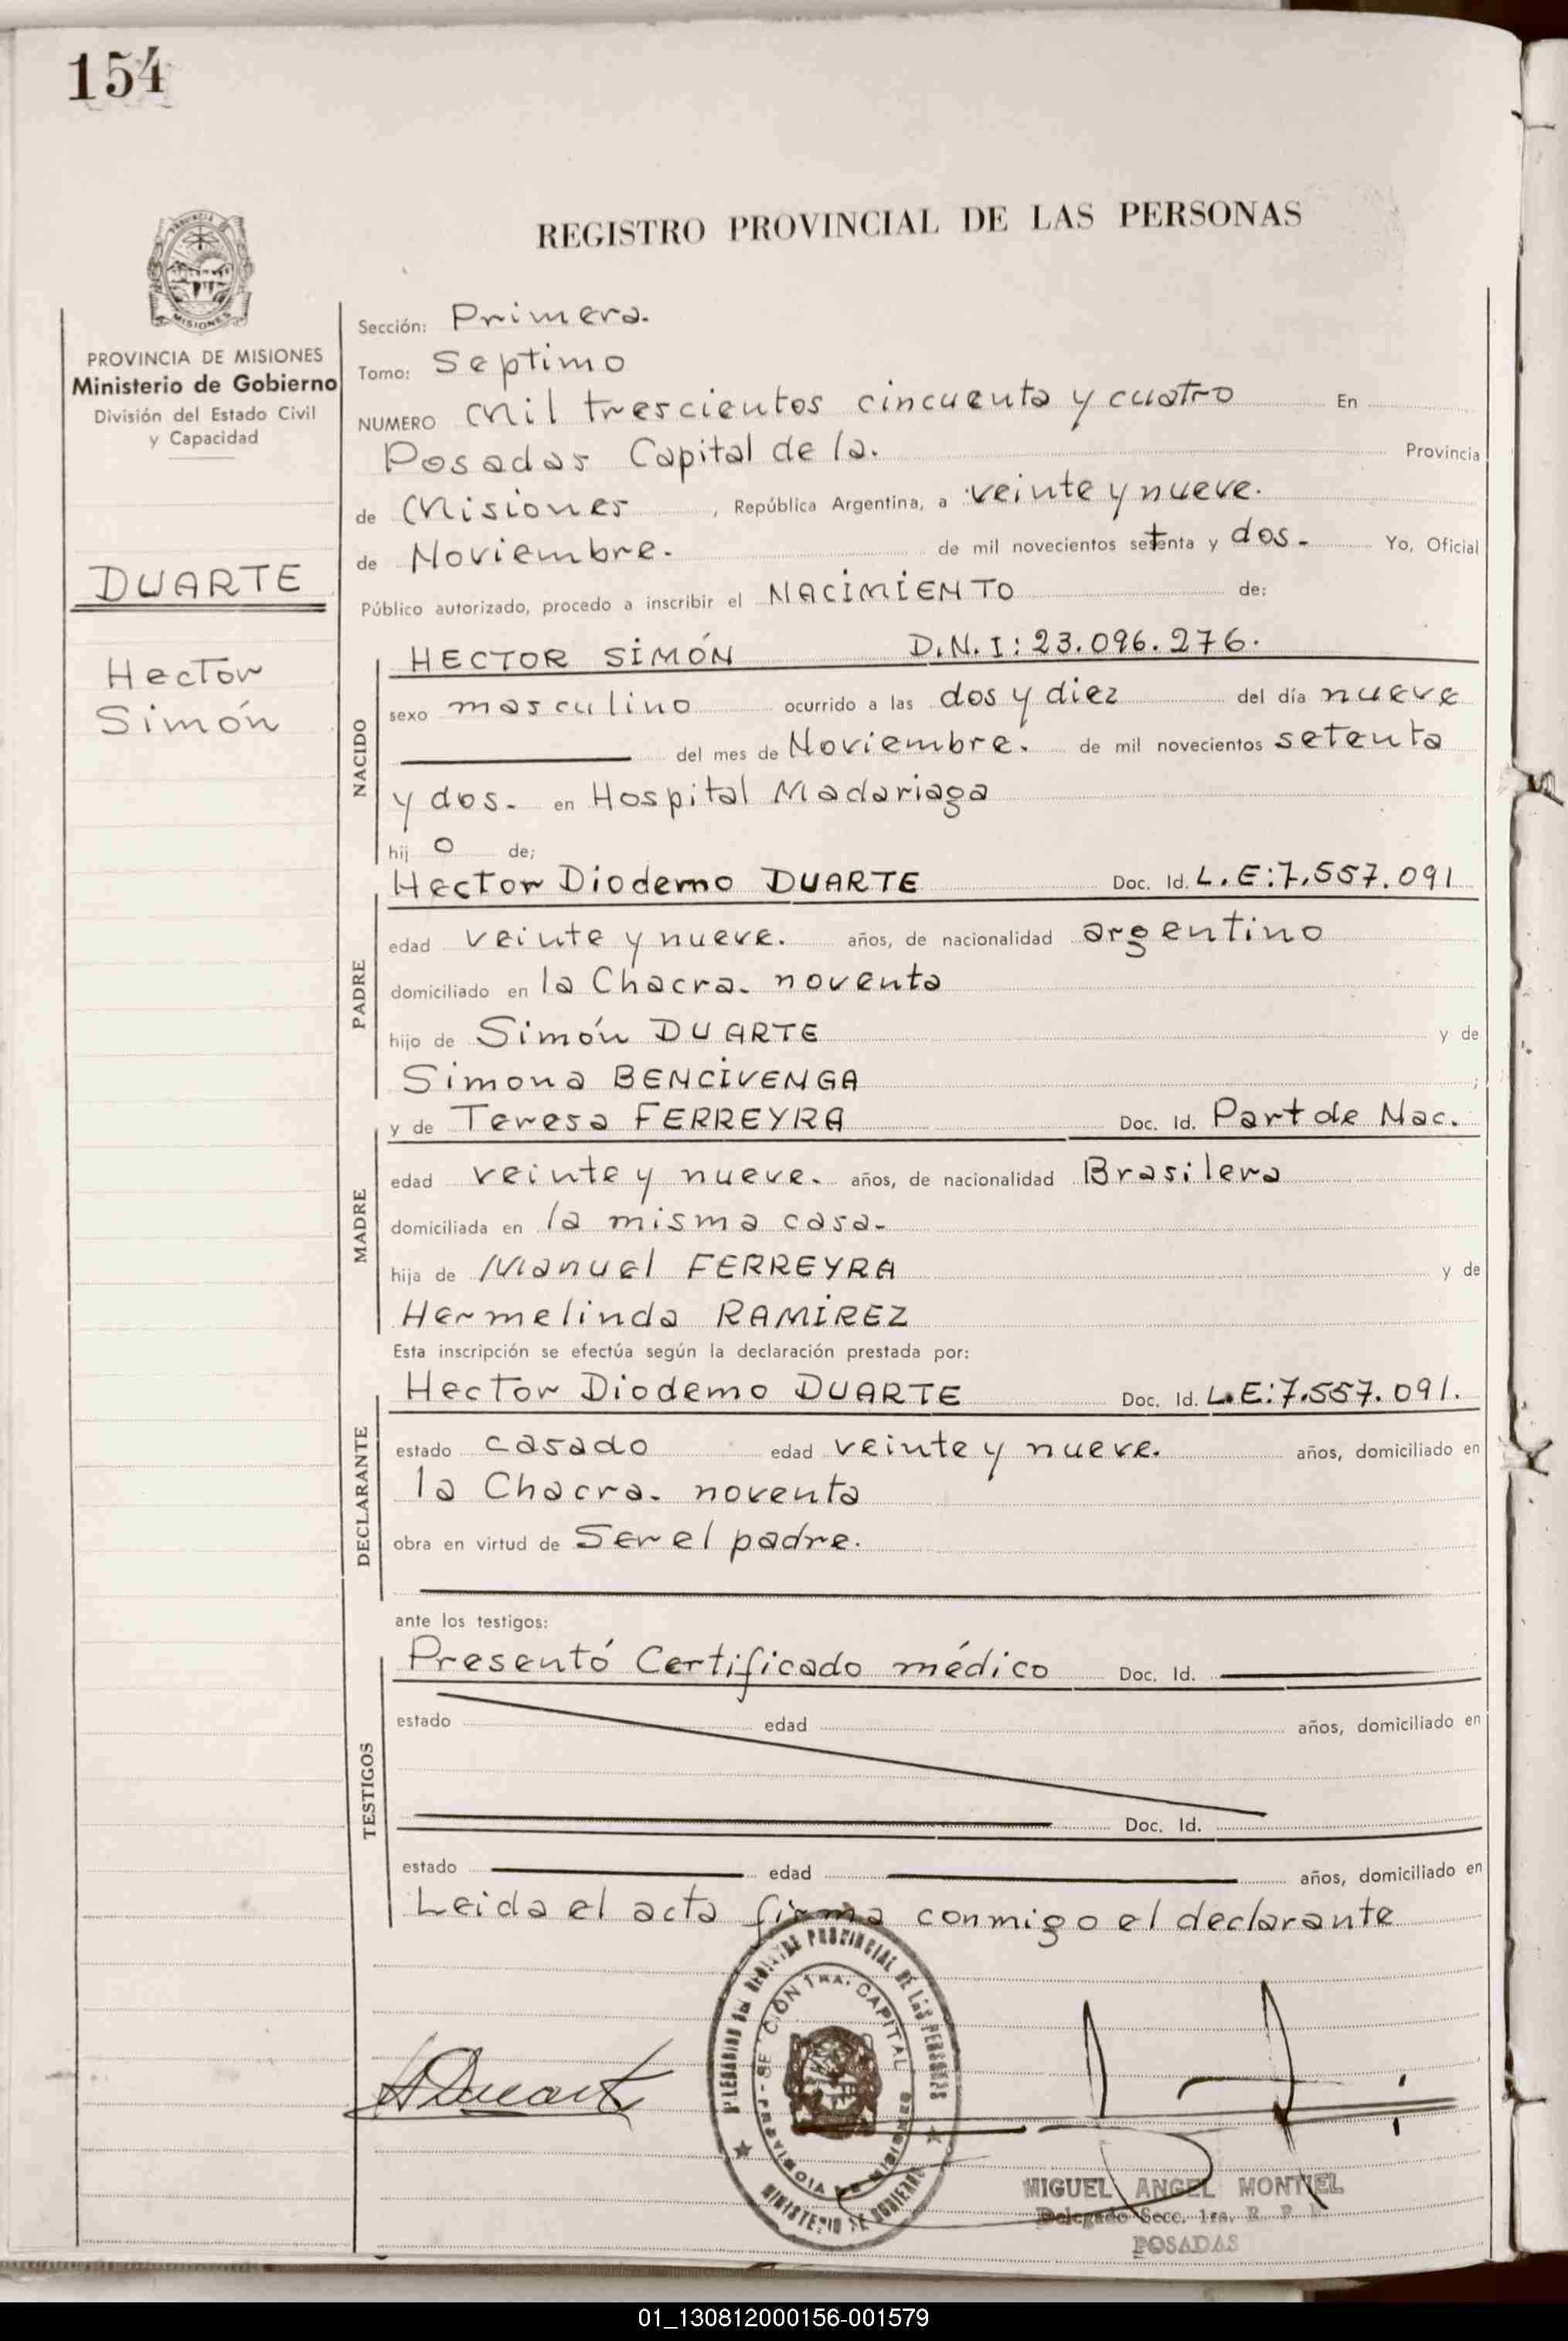 154
MISIONES
PROVINCIA DE MISIONES
Ministerio de Gobierno
División del Estado Civil
y Capacidad
DUARTE
Hector
Simón
REGISTRO PROVINCIAL DE LAS PERSONAS
Sección: Primera.
Tomo: Septimo
NUMERO Mil trescientos cincuenta y cuatro En
Posadas Capital de la. Provincia
de Misiones , República Argentina, a veinte y nueve.
de Noviembre. de mil novecientos setenta y dos. Yo, Oficial
Público autorizado, procedo a inscribir el NACIMIENTO de:
NACIDO
HECTOR SIMÓN D.N.I: 23.096.276.
sexo masculino ocurrido a las dos y diez del día nueve
del mes de Noviembre. de mil novecientos setenta
y dos. en Hospital Madariaga
hij o de;
PADRE
Hector Diodemo DUARTE Doc. Id. L.E:7.557.091
edad veinte y nueve. años, de nacionalidad argentino
domiciliado en la Chacra. noventa
hijo de Simón DUARTE y de
Simona BENCIVENGA ;
MADRE
y de Teresa FERREYRA Doc. Id. Part de Nac.
edad veinte y nueve. años, de nacionalidad Brasilera
domiciliada en la misma casa.
hija de Manuel FERREYRA y de
Hermelinda RAMIREZ
Esta inscripción se efectúa según la declaración prestada por:
DECLARANTE
Hector Diodemo DUARTE Doc. Id. L.E:7.557.091.
estado casado edad veinte y nueve. años, domiciliado en
la Chacra. noventa
obra en virtud de Ser el padre.
ante los testigos:
TESTIGOS
Presentó Certificado médico Doc. Id.
estado edad años, domiciliado en
Doc. Id.
estado edad años, domiciliado en
Leida el acta firma conmigo el declarante
HDuarte
REGISTRO PROVINCIAL DE LAS PERSONAS
SECCION 1RA. CAPITAL
PROVINCIA DE MISIONES
MINISTERIO DE GOBIERNO
MIGUEL ANGEL MONTIEL
Delegado Secc. 1ra. R. P.
POSADAS
01_130812000156-001579